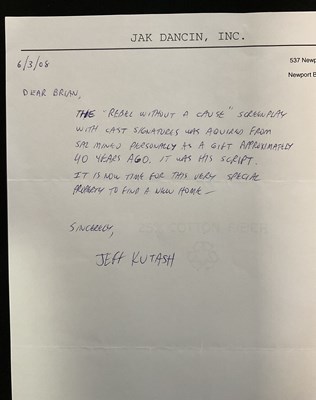 JAK DANCIN, INC.
537 Newp
Newport B
6/3/08
DEAR BRIAN,
THE "REBEL WITHOUT A CAUSE" SCREENPLAY
WITH CAST SIGNATURES WAS AQUIRED FROM
SAL MINEO PERSONALLY AS A GIFT APPROXIMATELY
40 YEARS AGO. IT WAS HIS SCRIPT.
IT IS NOW TIME FOR THIS VERY SPECIAL
PROPERTY TO FIND A NEW HOME —
SINCERELY,
JEFF KUTASH